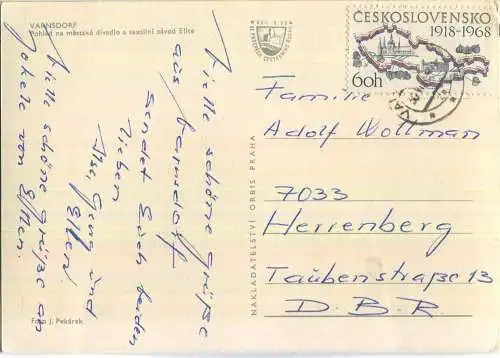 VARNSDORF
Pohled na městské divadlo a textilní závod Elite
Viele schöne Grüße
aus Varnsdorf
sendet Euch beiden
Lieben
Ilse, Georg und
Ellen.
Viele schöne Grüße an
von Ellen.
Foto J. Pekárek
NAKLADATELSTVÍ ORBIS, PRAHA
ČESKOSLOVENSKO
1918-1968
60h
Familie
Adolf Wollman
7033
Herrenberg
Taubenstraße 13
D.B.R.